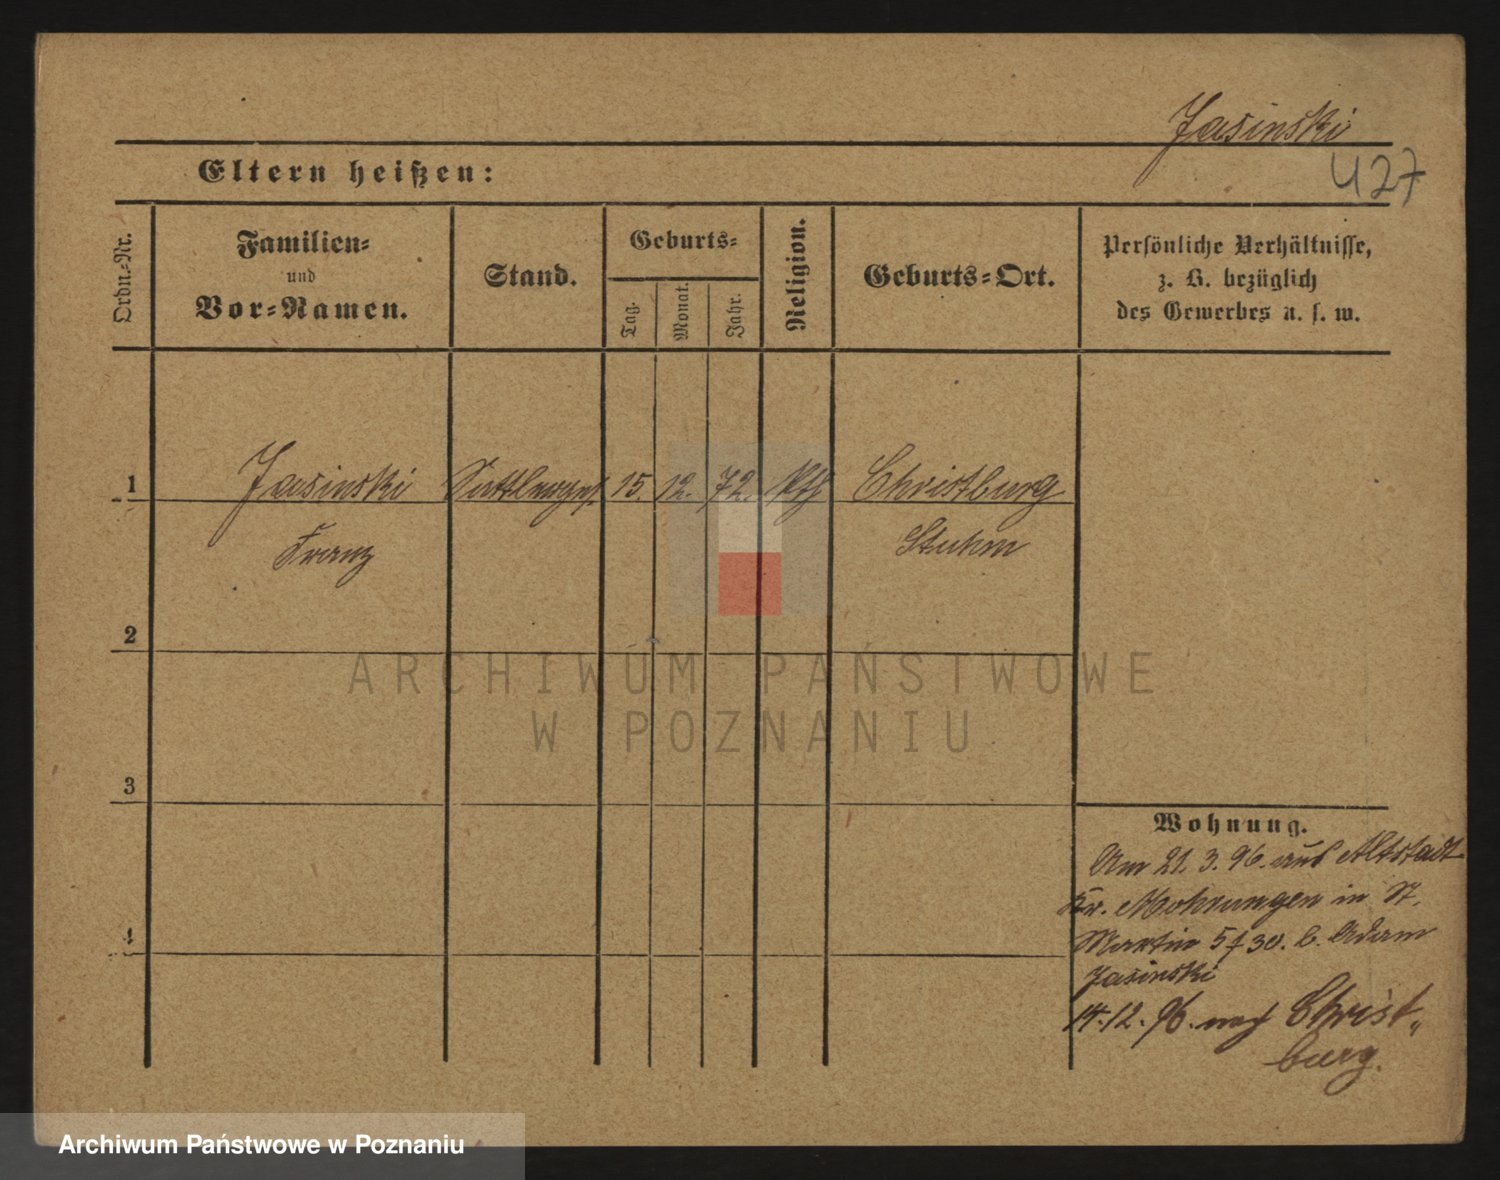 Jasinski
427
Eltern heißen:
Ordn.-Nr.
Familien-
und
Vor-Namen.
Stand.
Geburts-
Tag.
Monat.
Jahr.
Religion.
Geburts-Ort.
Persönliche Verhältnisse,
z. B. bezüglich
des Gewerbes u. s. w.
1
Jasinski Sattlerges. 15. 12. 72. kth Christburg
Franz Stuhm
2
3
4
Wohnung.
Am 21. 3. 96. aus Altstadt
Kr. Mohrungen in St.
Martin 57 30. b. Adam
Jasinski
14. 12. 96. nach Christ„
burg.
ARCHIWUM PAŃSTWOWE
W POZNANIU
Archiwum Państwowe w Poznaniu